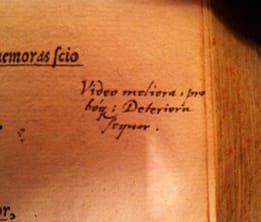 nemoras ſcio
Video meliora, pro
bóq; Deteriora
ſequor.
or,